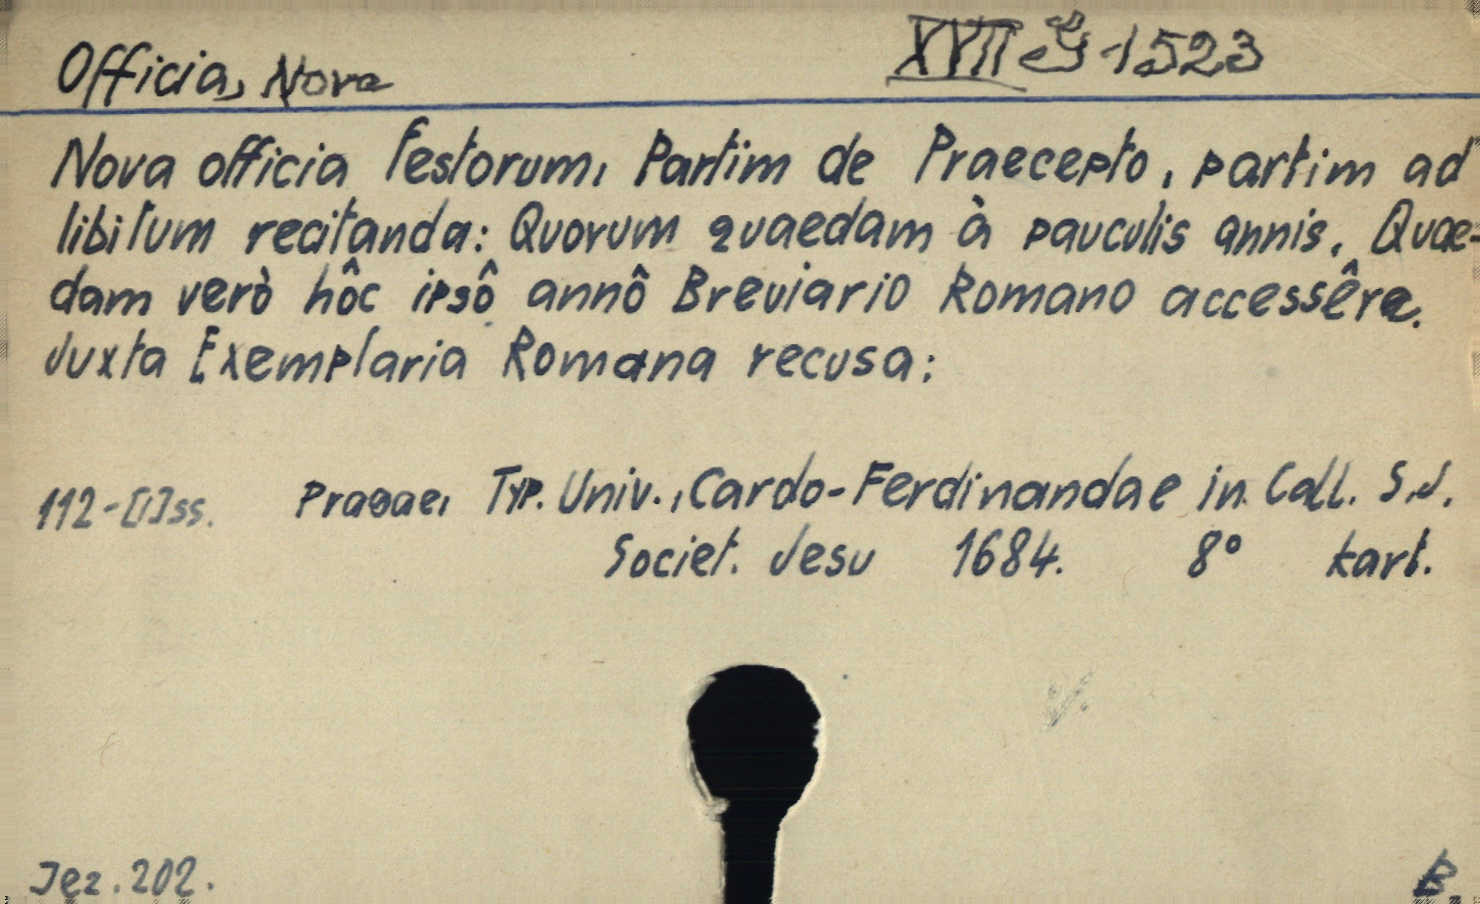 Officia, Nova
XVII G 1523
Nova officia Festorum, Partim de Praecepto, partim ad
libitum recitanda: Quorum quaedam à pauculis annis, Quae-
dam verò hôc ipsô annô Breviario Romano accessêre.
Juxta Exemplaria Romana recusa:
112-[1]ss. Pragae, Typ. Univ., Cardo-Ferdinandae in Coll. S.J.
Societ. Jesu 1684. 8° kart.
Jęz. 202.
B.